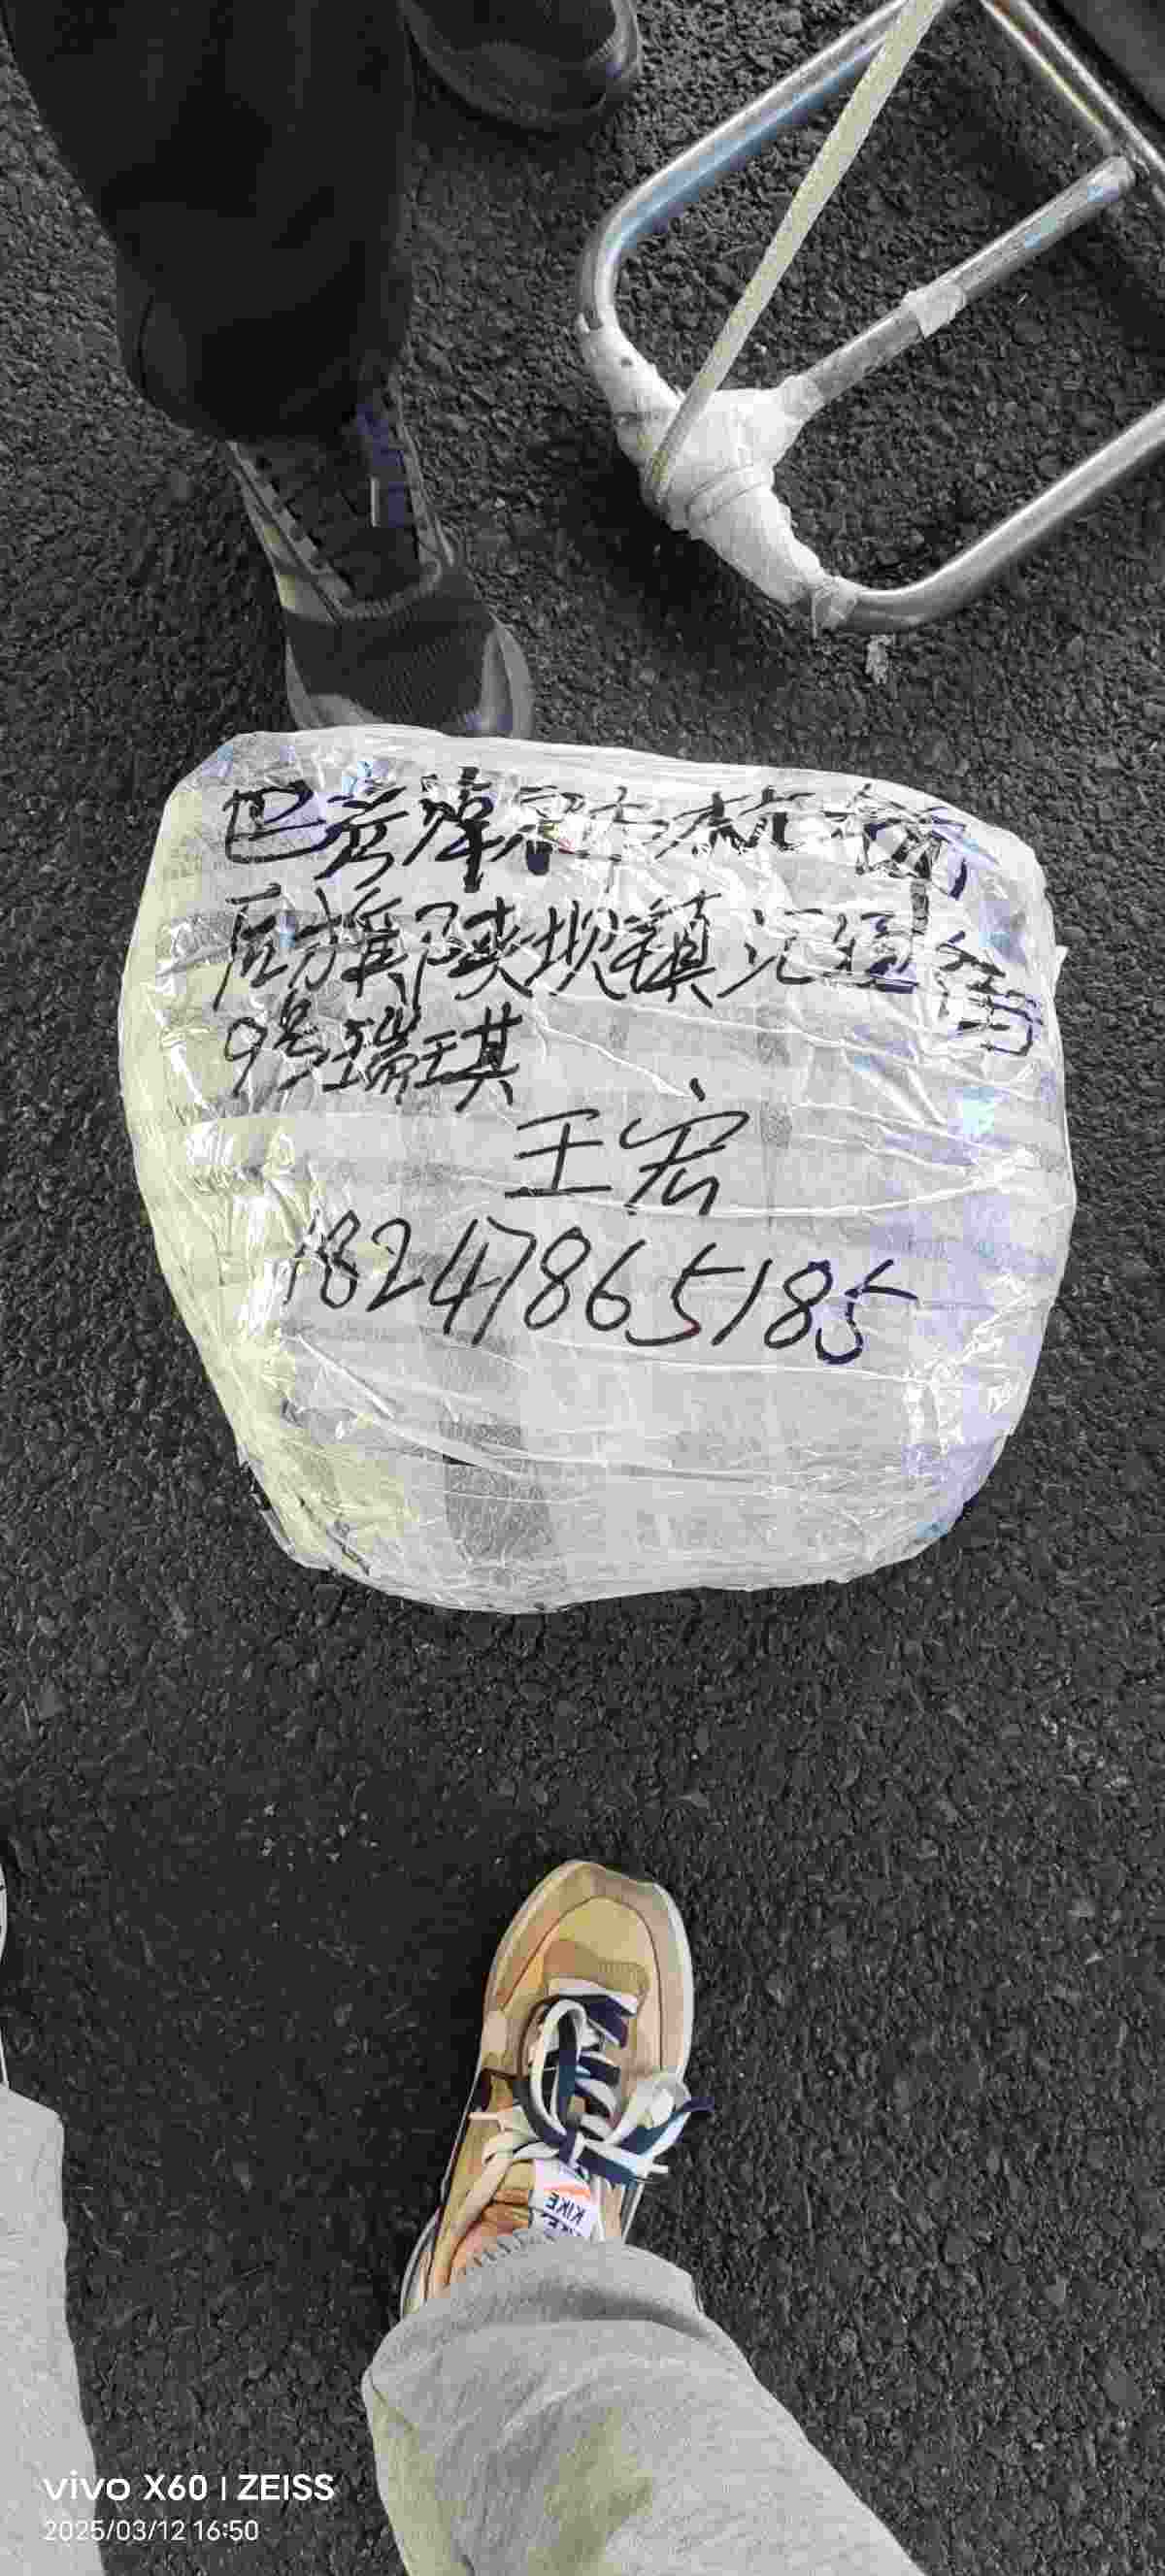 巴彦淖尔市杭锦
后旗陕坝镇汇丰街
9号瑞琪
王宏
18247865185
KIKE
vivo X60 | ZEISS
2025/03/12 16:50